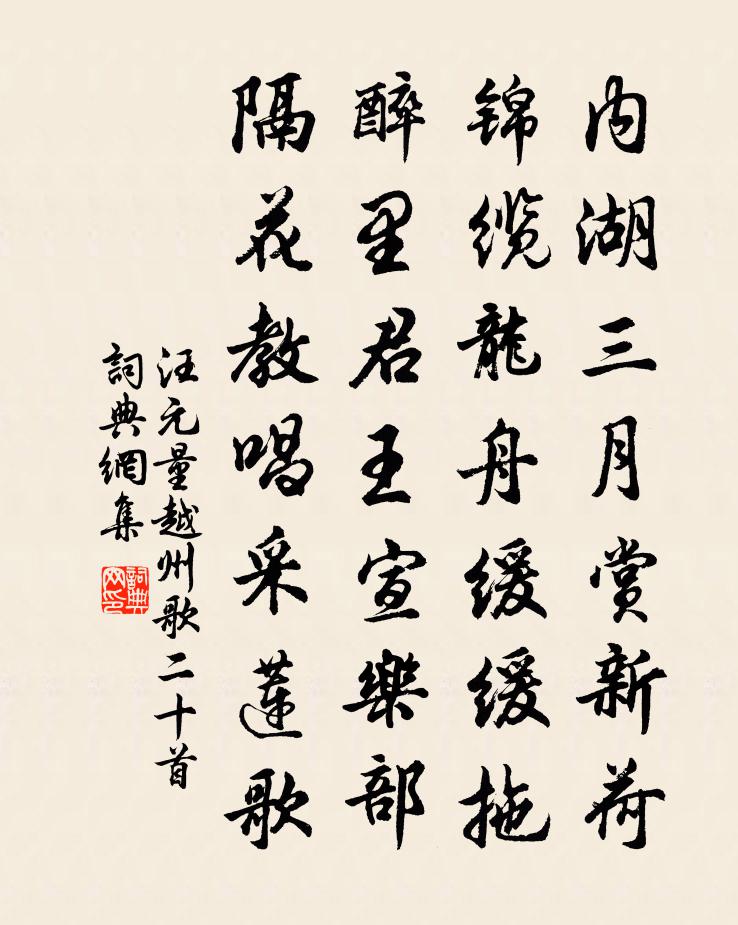 内湖三月賞新荷
锦缆龍舟缓缓拖
醉里君王宣樂部
隔花教唱采蓮歌
汪元量越州歌二十首
詞典網集
詞典网印